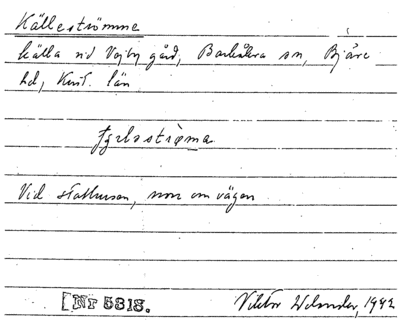 Källeströmme
källa vid Vejby gård, Barkåkra sn, Bjäre
hd, Krist. län
Vid stathusen, norr om vägen
[NF 5318.
Viktor Wilander, 1942